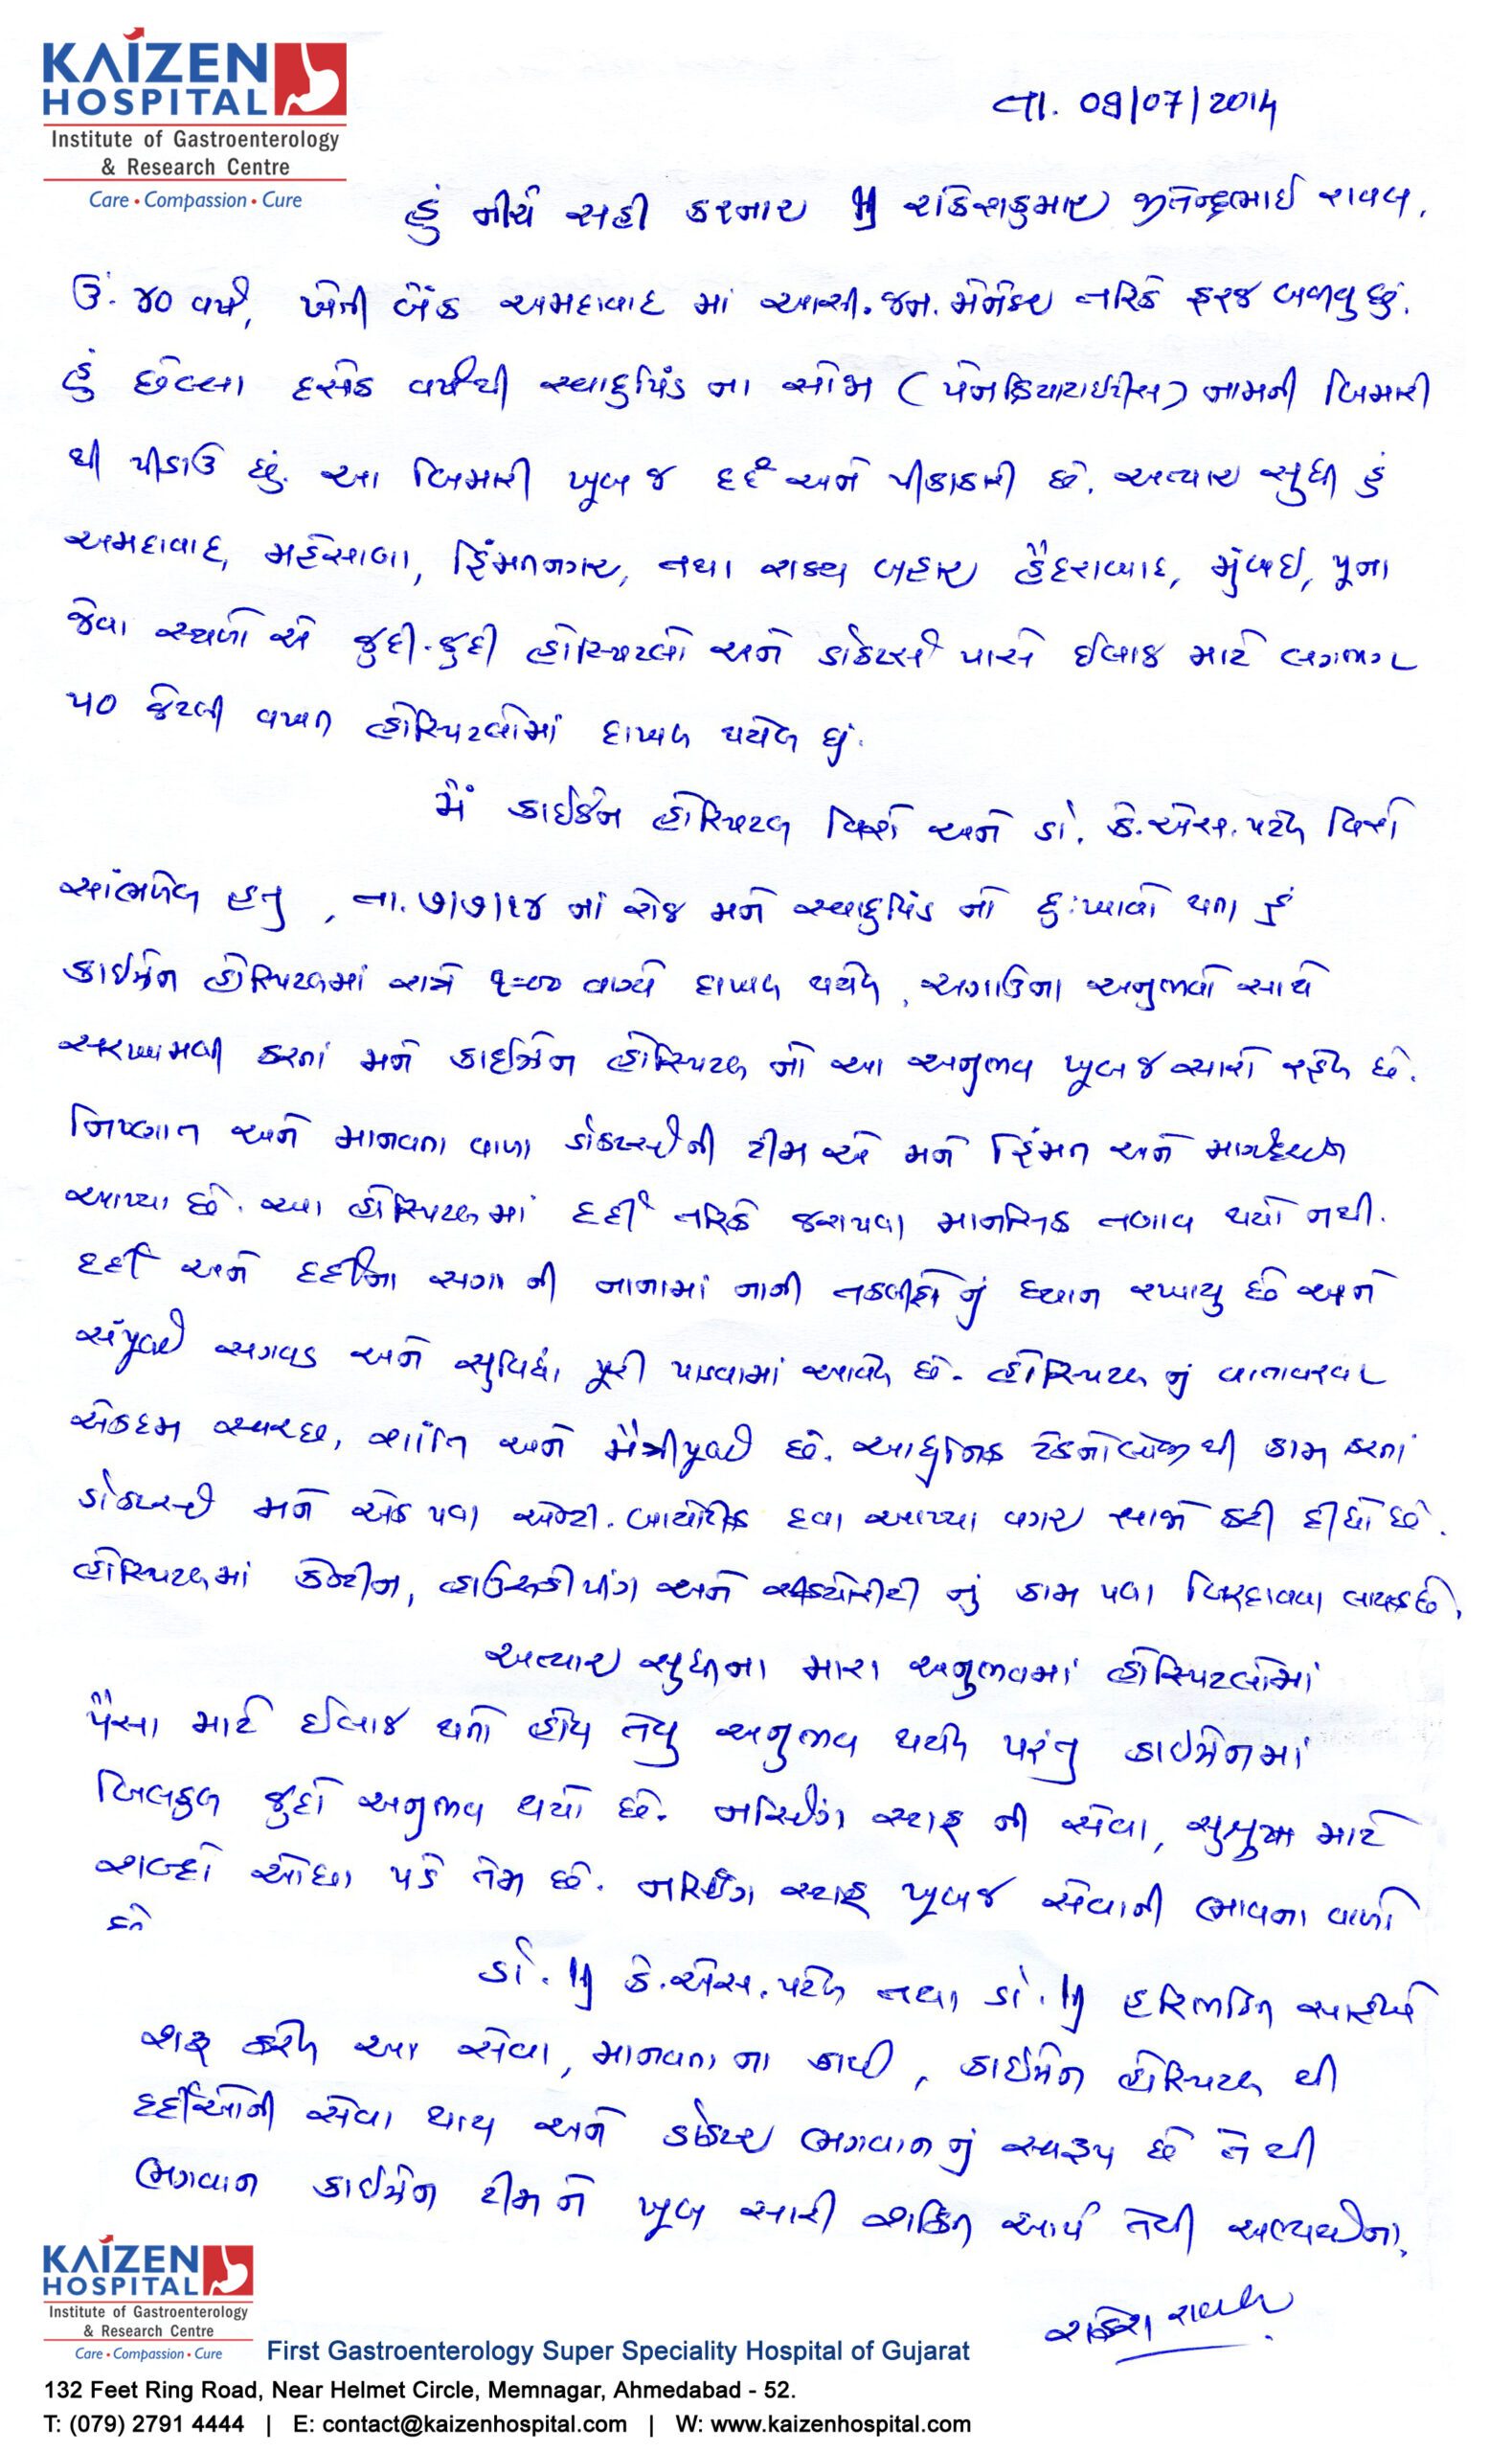 KAIZEN
HOSPITAL
Institute of Gastroenterology
& Research Centre
Care • Compassion • Cure
તા. 09/07/2014
હું નીચે સહી કરનાર શ્રી રાકેશકુમાર જીતેન્દ્રભાઈ રાવલ.
ઉં. ૪૦ વર્ષ, ખેતી બેંક અમદાવાદ માં આસી. જન. મેનેજર તરીકે ફરજ બજાવુ છું.
હું છેલ્લા દસેક વર્ષથી સ્વાદુપિંડ ના સોજા (પેનક્રિયાટાઈટીસ) નામની બિમારી
થી પીડાઉ છું. આ બિમારી ખૂબ જ દર્દ અને પીડાકારી છે. અત્યાર સુધી હું
અમદાવાદ, મહેસાણા, હિંમતનગર, તથા રાજ્ય બહાર હૈદરાબાદ, મુંબઈ, પૂના
જેવા સ્થળો એ જુદી-જુદી હોસ્પિટલો અને ડોક્ટર્સ પાસે ઈલાજ માટે લગભગ
૫૦ જેટલી વખત હોસ્પિટલોમાં દાખલ થયેલ છું.
મેં કાઈઝેન હોસ્પિટલ વિશે અને ડૉ. કે.એસ. પટેલ વિશે
સાંભળેલ હતુ, તા. ૭/૭/૧૪ નાં રોજ મને સ્વાદુપિંડ નો દુઃખાવો થતા હું
કાઈઝેન હોસ્પિટલમાં રાત્રે ૧=૦૦ વાગ્યે દાખલ થયેલ, અગાઉના અનુભવો સાથે
સરખામણી કરતાં મને કાઈઝેન હોસ્પિટલ નો આ અનુભવ ખૂબ જ સારો રહેલ છે.
નિષ્ણાત અને માનવતા વાળા ડોક્ટર્સની ટીમ એ મને હિંમત અને માર્ગદર્શન
આપ્યા છે. આ હોસ્પિટલમાં દર્દી તરીકે જરાપણ માનસિક તણાવ થયો નથી.
દર્દી અને દર્દીના સગા ની નાનામાં નાની તકલીફો નું ધ્યાન રખાયુ છે અને
સંપૂર્ણ સગવડ અને સુવિધા પૂરી પાડવામાં આવેલ છે. હોસ્પિટલ નું વાતાવરણ
એકદમ સ્વચ્છ, શાંતિ અને મૈત્રીપૂર્ણ છે. આધુનિક ટેકનોલોજી થી કામ કરતાં
ડોક્ટર્સે મને એક પણ એન્ટી. બાયોટીક દવા આપ્યા વગર સાજો કરી દીધો છે.
હોસ્પિટલમાં કેન્ટીન, હાઉસકીપીંગ અને સીક્યોરીટી નું કામ પણ બિરદાવવા લાયક છે.
અત્યાર સુધીના મારા અનુભવમાં હોસ્પિટલોમાં
પૈસા માટે ઈલાજ થતો હોય તેવુ અનુભવ થયેલ પરંતુ કાઈઝેનમાં
બિલકુલ જુદો અનુભવ થયો છે. નર્સિંગ સ્ટાફ ની સેવા, સુશ્રુષા માટે
શબ્દો ઓછા પડે તેમ છે. નર્સિંગ સ્ટાફ ખૂબ જ સેવાની ભાવના વાળો
છે
ડૉ. શ્રી કે.એસ. પટેલ તથા ડૉ. શ્રી હરિભક્તિ સાહેબે
શરૂ કરેલ આ સેવા, માનવતા ના કાર્ય, કાઈઝેન હોસ્પિટલ થી
દર્દીઓની સેવા થાય અને ડૉક્ટર ભગવાન નું સ્વરૂપ છે તે થી
ભગવાન કાઈઝેન ટીમ ને ખૂબ સારી શક્તિ આપે તેવી અભ્યર્થના.
રાકેશ રાવલ
KAIZEN
HOSPITAL
Institute of Gastroenterology
& Research Centre
Care • Compassion • Cure
First Gastroenterology Super Speciality Hospital of Gujarat
132 Feet Ring Road, Near Helmet Circle, Memnagar, Ahmedabad - 52.
T: (079) 2791 4444 | E: contact@kaizenhospital.com | W: www.kaizenhospital.com